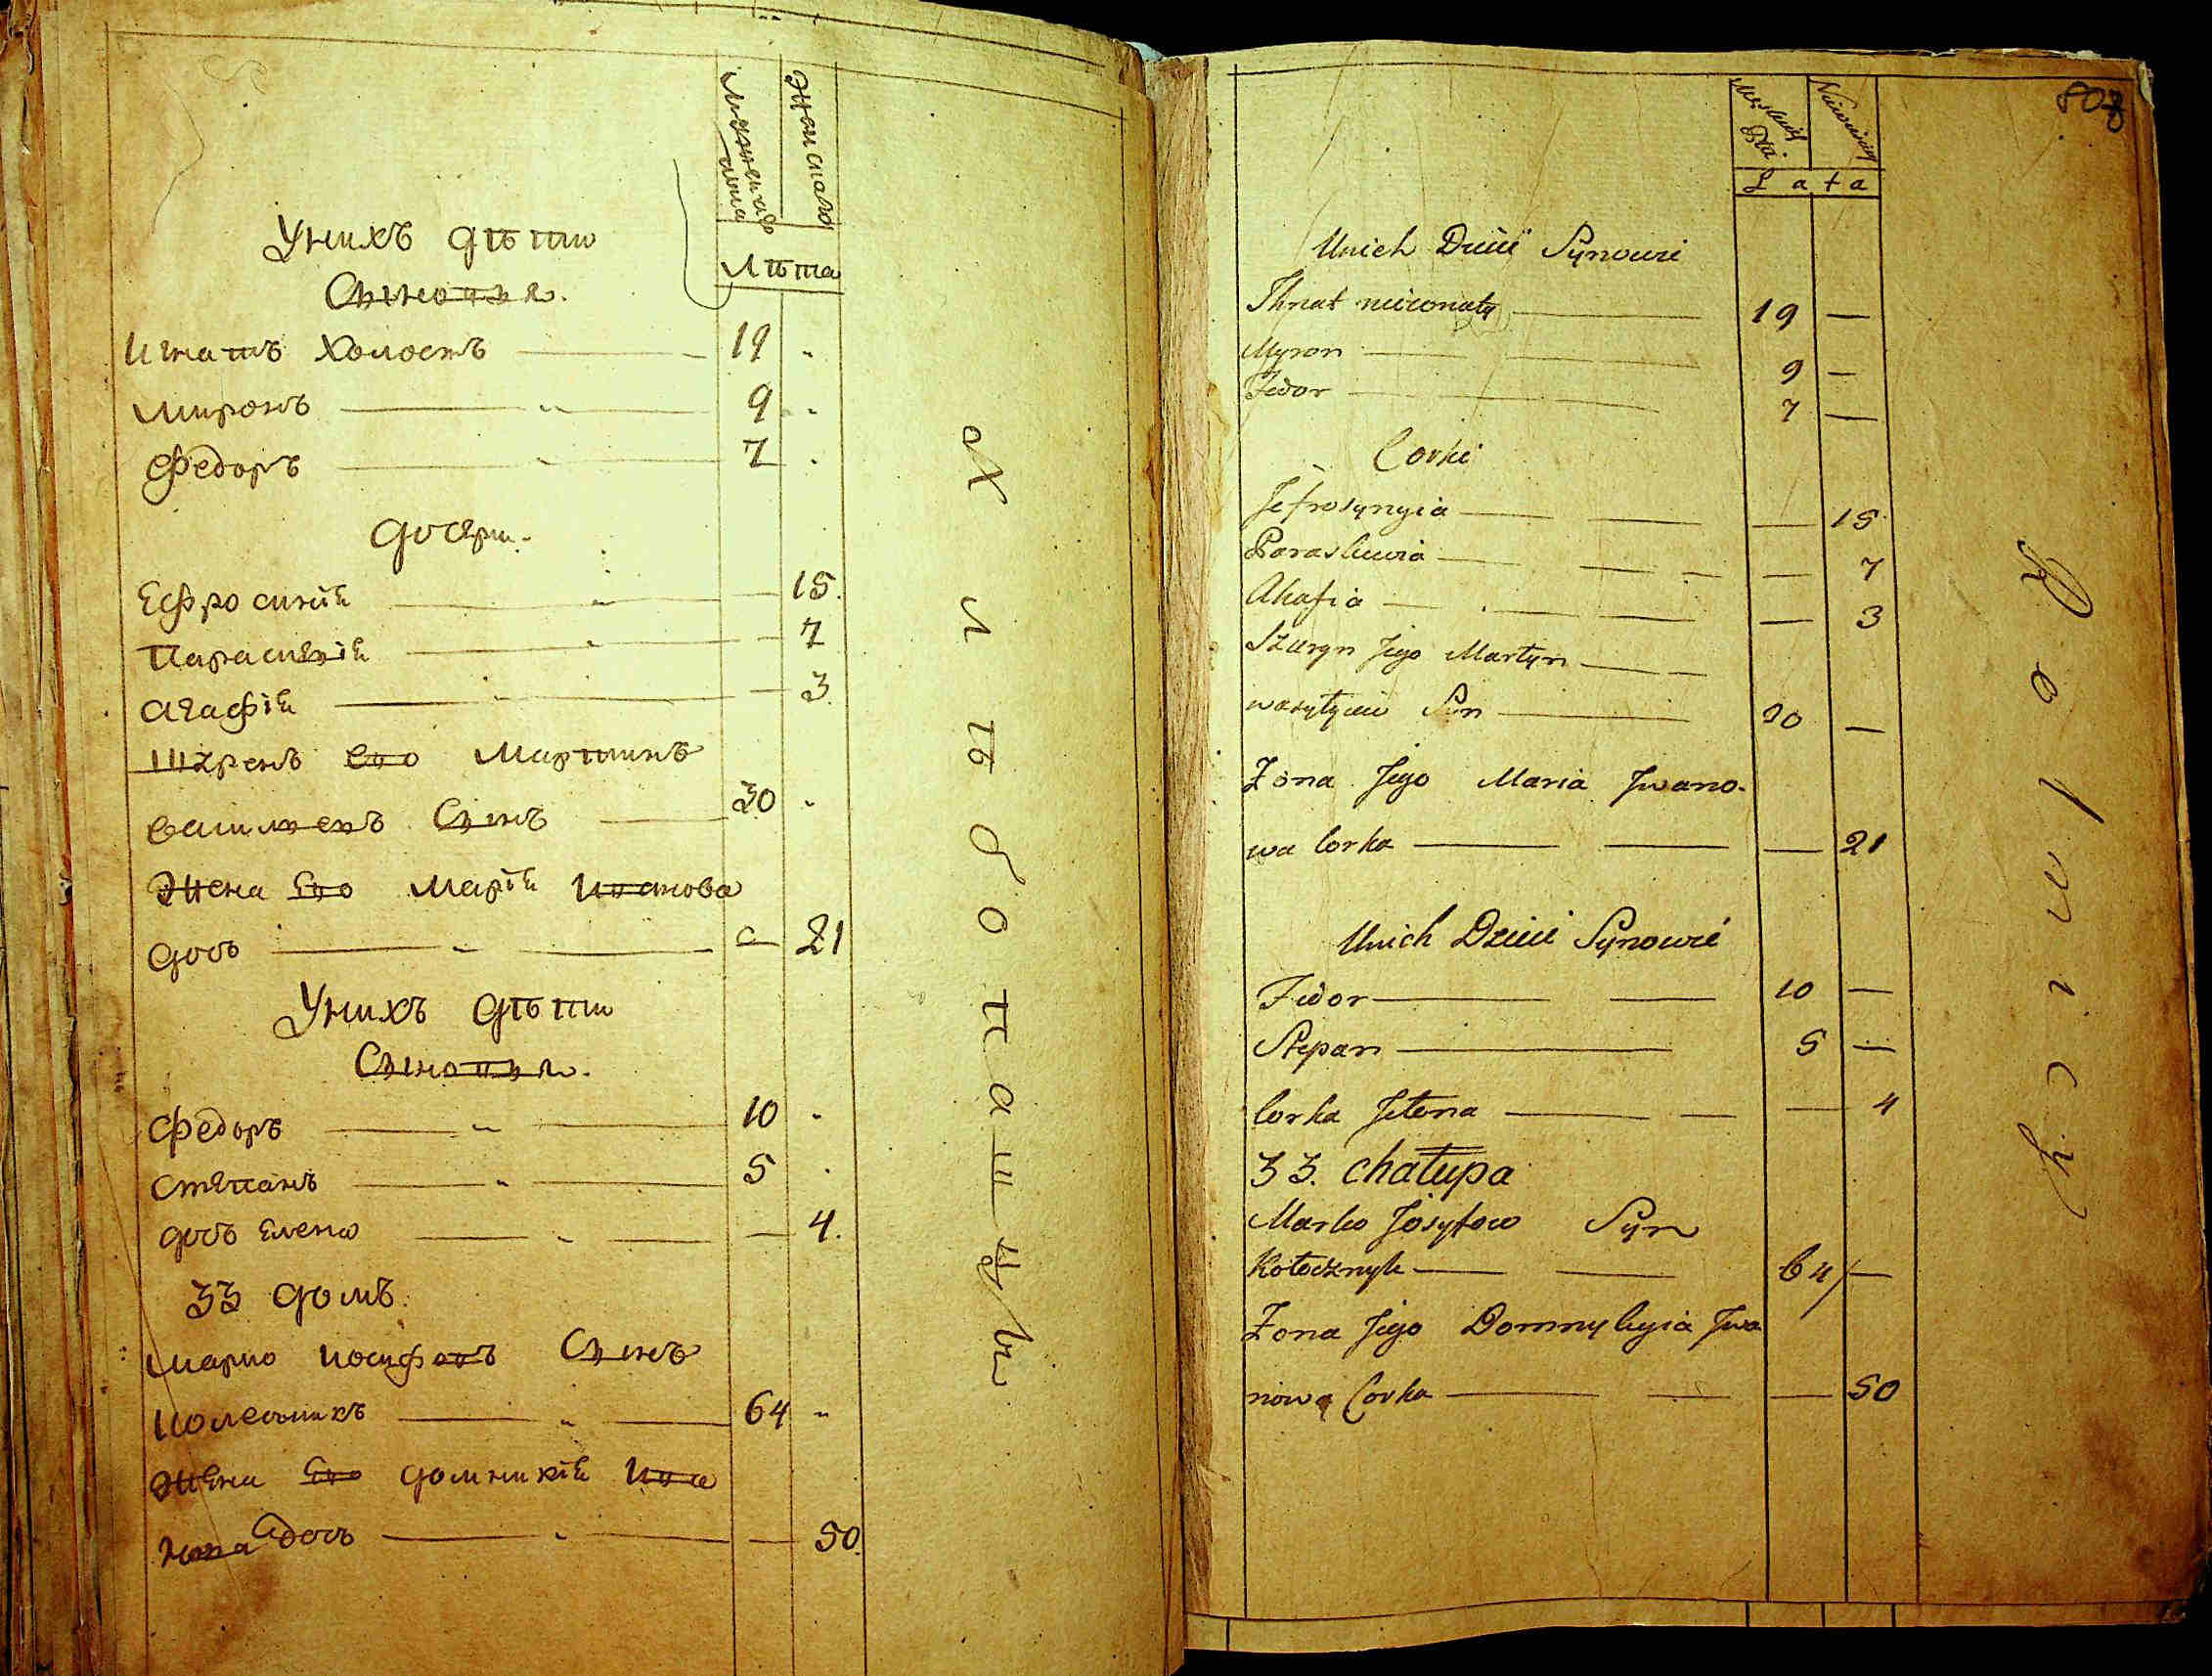 Мужеска
пола
Женскаго
Лѣта
Унихъ дѣти
Сыновья.
Игнатъ Холостъ 19
Миронъ 9
Федоръ 7
дочери.
Ефросинія 15.
Параскевія 7
Агафія 3
Шуренъ Его Мартинъ
Василіевъ Сынъ 30
Жена Его Марія Иванова
дочь 21
Унихъ дѣти
Сыновья.
Федоръ 10
Степанъ 5
дочь Елена 4.
33 домъ.
Марко Иосифовъ Сынъ
Колесникъ 64
Жена Его домникія Ива
нова дочь 50.
Хлѣбопашцы
807
L a t a
Unich Dzieci Synowie
Ihnat nieżonaty 19
Myron 9
Fedor 7
Corki
Jefrosynyia 15.
Paraskiewia 7
Ahafia 3
Szuryn Jego Martyn
wasylyiew Syn 30
Żona Jego Maria Jwano-
wa Corka 21
Unich Dzieci Synowie
Fedor 10
Stepan 5
Corka Jełena 4
33. chałupa
Marko Josyfow Syn
Kołocznyk 64
Żona Jego Domnykyia Jwa
nowa Corka 50
Rolnicy